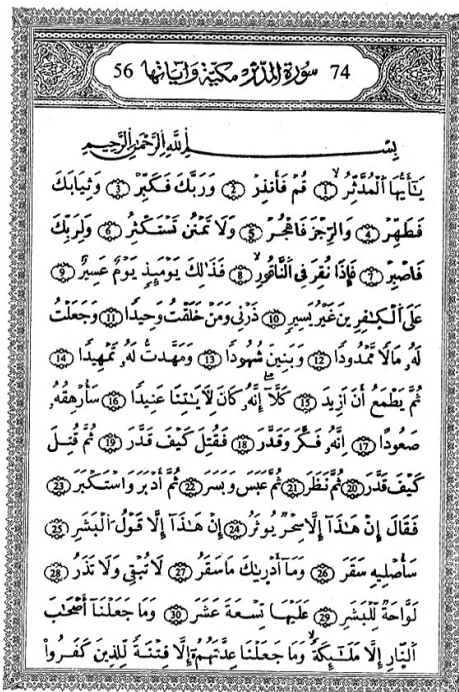 74 سورة المدثر مكية وءاياتها 56
بِسْمِ اللَّهِ الرَّحْمَٰنِ الرَّحِيمِ
يَٰٓأَيُّهَا ٱلْمُدَّثِّرُ 1 قُمْ فَأَنذِرْ 2 وَرَبَّكَ فَكَبِّرْ 3 وَثِيَابَكَ
فَطَهِّرْ 4 وَٱلرِّجْزَ فَٱهْجُرْ 5 وَلَا تَمْنُن تَسْتَكْثِرُ 6 وَلِرَبِّكَ
فَٱصْبِرْ 7 فَإِذَا نُقِرَ فِي ٱلنَّاقُورِ 8 فَذَٰلِكَ يَوْمَئِذٍ يَوْمٌ عَسِيرٌ 9
عَلَى ٱلْكَٰفِرِينَ غَيْرُ يَسِيرٍ 10 ذَرْنِي وَمَنْ خَلَقْتُ وَحِيدًا 11 وَجَعَلْتُ
لَهُۥ مَالًا مَّمْدُودًا 12 وَبَنِينَ شُهُودًا 13 وَمَهَّدتُّ لَهُۥ تَمْهِيدًا 14
ثُمَّ يَطْمَعُ أَنْ أَزِيدَ 15 كَلَّآ إِنَّهُۥ كَانَ لِأٓيَٰتِنَا عَنِيدًا 16 سَأُرْهِقُهُۥ
صَعُودًا 17 إِنَّهُۥ فَكَّرَ وَقَدَّرَ 18 فَقُتِلَ كَيْفَ قَدَّرَ 19 ثُمَّ قُتِلَ
كَيْفَ قَدَّرَ 20 ثُمَّ نَظَرَ 21 ثُمَّ عَبَسَ وَبَسَرَ 22 ثُمَّ أَدْبَرَ وَٱسْتَكْبَرَ 23
فَقَالَ إِنْ هَٰذَآ إِلَّا سِحْرٌ يُؤْثَرُ 24 إِنْ هَٰذَآ إِلَّا قَوْلُ ٱلْبَشَرِ 25
سَأُصْلِيهِ سَقَرَ 26 وَمَآ أَدْرَىٰكَ مَا سَقَرُ 27 لَا تُبْقِي وَلَا تَذَرُ 28
لَوَّاحَةٌ لِّلْبَشَرِ 29 عَلَيْهَا تِسْعَةَ عَشَرَ 30 وَمَا جَعَلْنَآ أَصْحَٰبَ
ٱلنَّارِ إِلَّا مَلَٰٓئِكَةً وَمَا جَعَلْنَا عِدَّتَهُمْ إِلَّا فِتْنَةً لِّلَّذِينَ كَفَرُوا۟